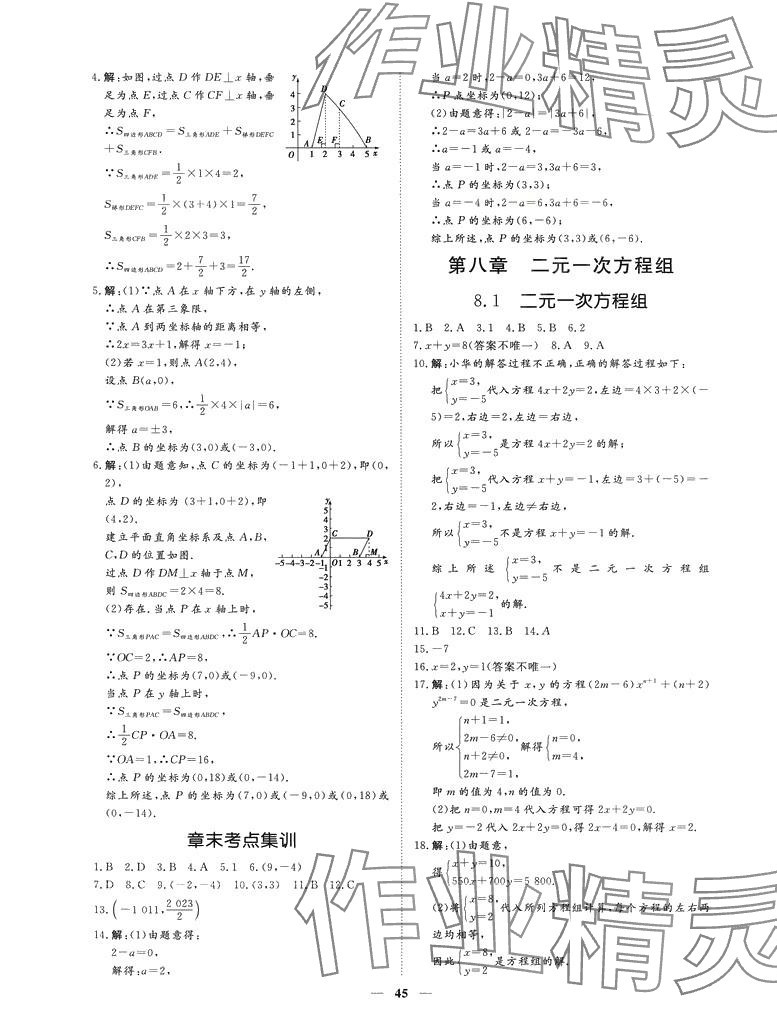 4.解:如图,过点D作DE⊥x轴,垂
足为点E,过点C作CF⊥x轴,垂
足为点F,
∴S四边形ABCD=S三角形ADE+S梯形DEFC
+S三角形CFB.
∵S三角形ADE=1/2×1×4=2,
S梯形DEFC=1/2×(3+4)×1=7/2,
S三角形CFB=1/2×2×3=3,
∴S四边形ABCD=2+7/2+3=17/2.
5.解:(1)∵点A在x轴下方,在y轴的左侧,
∴点A在第三象限,
∵点A到两坐标轴的距离相等,
∴2x=3x+1,解得x=-1;
(2)若x=1,则点A(2,4),
设点B(a,0),
∵S三角形OAB=6,∴1/2×4×|a|=6,
解得a=±3,
∴点B的坐标为(3,0)或(-3,0).
6.解:(1)由题意知,点C的坐标为(-1+1,0+2),即(0,
2),
点D的坐标为(3+1,0+2),即
(4,2).
建立平面直角坐标系及点A,B,
C,D的位置如图.
过点D作DM⊥x轴于点M,
则S四边形ABDC=2×4=8.
(2)存在.当点P在x轴上时,
∵S三角形PAC=S四边形ABDC,∴1/2AP·OC=8.
∵OC=2,∴AP=8,
∴点P的坐标为(7,0)或(-9,0).
当点P在y轴上时,
∵S三角形PAC=S四边形ABDC,
∴1/2CP·OA=8.
∵OA=1,∴CP=16,
∴点P的坐标为(0,18)或(0,-14).
综上所述,点P的坐标为(7,0)或(-9,0)或(0,18)或
(0,-14).
章末考点集训
1.B 2.D 3.B 4.A 5.1 6.(9,-4)
7.D 8.C 9.(-2,-4) 10.(3,3) 11.B 12.C
13.(-1 011,2 023/2)
14.解:(1)由题意得:
2-a=0,
解得:a=2,
当a=2时,2-a=0,3a+6=12,
∴P点坐标为(0,12);
(2)由题意得:|2-a|=|3a+6|,
∴2-a=3a+6或2-a=-3a-6,
∴a=-1或a=-4,
当a=-1时,2-a=3,3a+6=3,
∴点P的坐标为(3,3);
当a=-4时,2-a=6,3a+6=-6,
∴点P的坐标为(6,-6);
综上所述,点P的坐标为(3,3)或(6,-6).
第八章 二元一次方程组
8.1 二元一次方程组
1.B 2.A 3.1 4.B 5.B 6.2
7.x+y=8(答案不唯一) 8.A 9.A
10.解:小华的解答过程不正确,正确的解答过程如下:
把{x=3,y=-5代入方程4x+2y=2,左边=4×3+2×(-
5)=2,右边=2,左边=右边,
所以{x=3,y=-5是方程4x+2y=2的解;
把{x=3,y=-5代入方程x+y=-1,左边=3+(-5)=-
2,右边=-1,左边≠右边,
所以{x=3,y=-5不是方程x+y=-1的解.
综上所述{x=3,y=-5不是二元一次方程组
{4x+2y=2,x+y=-1的解.
11.B 12.C 13.B 14.A
15.-7
16.x=2,y=1(答案不唯一)
17.解:(1)因为关于x,y的方程(2m-6)x^{n+1}+(n+2)
y^{2m-7}=0是二元一次方程,
所以{n+1=1,2m-6≠0,n+2≠0,2m-7=1,解得{n=0,m=4,
即m的值为4,n的值为0.
(2)把n=0,m=4代入方程可得2x+2y=0.
把y=-2代入2x+2y=0,得2x-4=0,解得x=2.
18.解:(1)由题意,
得{x+y=10,550x+700y=5 800.
(2)将{x=8,y=2代入所列方程组计算,每个方程的左右两
边均相等,
因此{x=8,y=2是方程组的解.
— 45 —
作业精灵
作业精灵